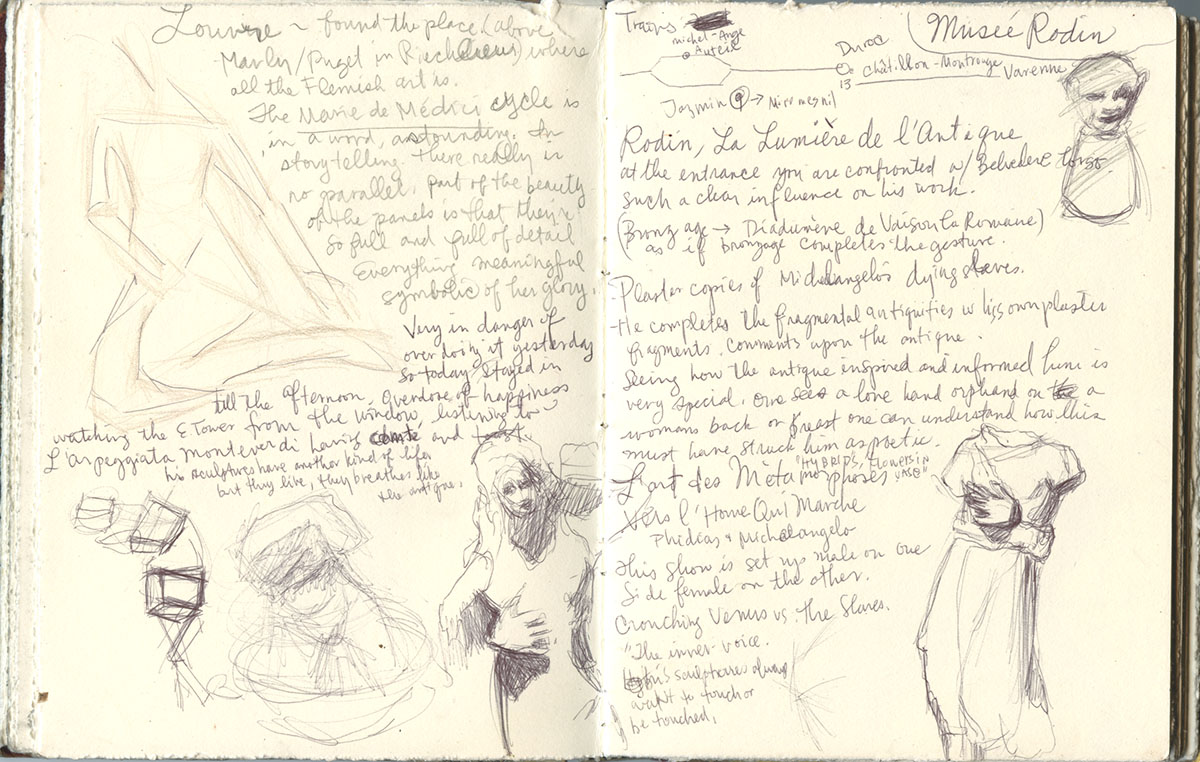 Louvre ~ found the place (above
Marly/Puget in Richelieu) where
all the Flemish art is.
The Marie de Médici cycle is
in a word, astounding. In
storytelling there really is
no parallel, part of the beauty
of the panels is that they're
so full and full of detail
Everything meaningful
symbolic of her glory.
Very in danger of
overdoing it yesterday
so today stayed in
till the afternoon. Overdose of happiness
watching the E Tower from the window listening to
L'arpeggiata monteverdi having comté and
his sculptures have another kind of life,
but they live, they breathe like
the antique.
michel-Ange
Auteil
Duroc
Musée Rodin
13 Châtillon-Montrouge Varenne
Jasmin 9 → Miromesnil
Rodin, La Lumière de l'Antique
at the entrance you are confronted w/ Belvedere torso
such a clear influence on his work.
(Bronz age → Diadumène de Vaison La Romaine)
as if bronzage completes the gesture.
-Plaster copies of Michelangelo's dying slaves.
-He completes the fragmental antiquities w his own plaster
fragments. Comments upon the antique.
Seeing how the antique inspired and informed him is
very special. One sees a lone hand orphand on a
womans back or breast one can understand how this
must have struck him as poetic.
L'art des Métamorphoses "HYBRIDS, FLOWERS IN VASE"
Vers l'Home Qui Marche
Phidias + Michelangelo
This show is set up male on one
side female on the other.
Crouching Venus vs. the Slaves.
"The inner voice.
sculptures always
want to touch or
be touched.